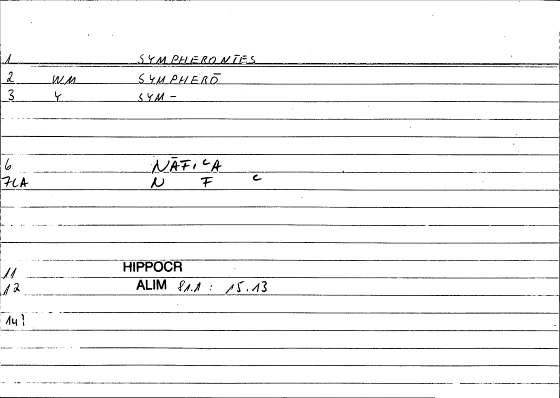 1 SYMPHERONTES
2 WM SYMPHERŌ
3 Y SYM-
6 NĀFICA
7LA N F C
11 HIPPOCR
12 ALIM 81.1 : 15.13
14?